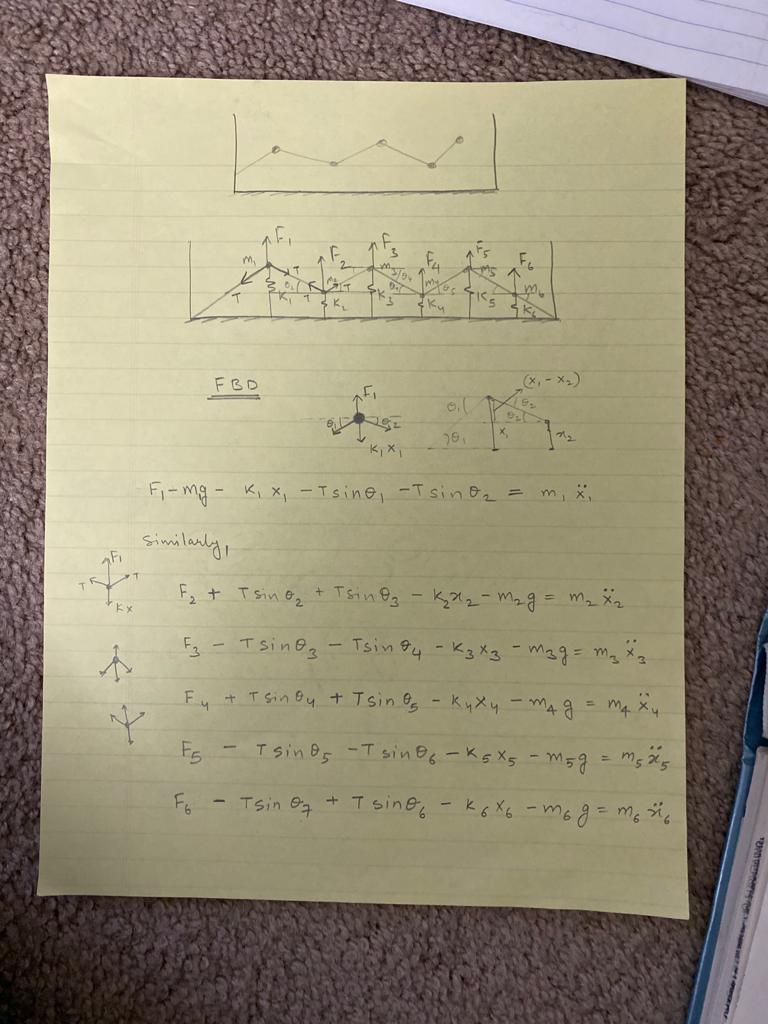 F₁ F₂ F₃ F₄ F₅ F₆
m₁ T T θ₂ m₂ T m₃ θ₄ θ₅ m₅ m₆
T K₁ K₂ K₃ K₄ K₅ K₆
FBD
F₁ (x₁ - x₂)
θ₁ θ₂ θ₁ θ₂
K₁ x₁ θ₁ θ₂ x₁ x₂
F₁ - m₁g - K₁ x₁ - T sin θ₁ - T sin θ₂ = m₁ ẍ₁
Similarly,
F₁
T T
Kx
F₂ + T sin θ₂ + T sin θ₃ - K₂x₂ - m₂g = m₂ ẍ₂
F₃ - T sin θ₃ - T sin θ₄ - K₃x₃ - m₃g = m₃ ẍ₃
F₄ + T sin θ₄ + T sin θ₅ - K₄x₄ - m₄g = m₄ ẍ₄
F₅ - T sin θ₅ - T sin θ₆ - K₅x₅ - m₅g = m₅ ẍ₅
F₆ - T sin θ₇ + T sin θ₆ - K₆x₆ - m₆g = m₆ ẍ₆